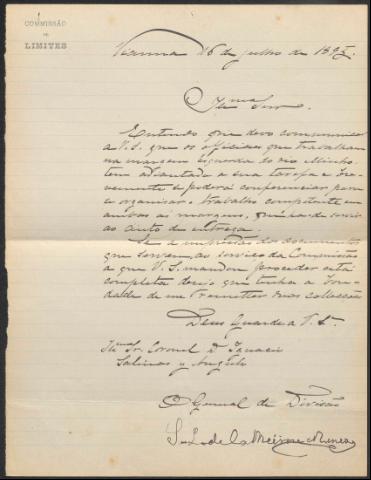 COMMISSÃO
DE
LIMITES
Vianna 16 de julho de 1895.
Illmo Snr.
Entendo que devo communicar
a V. S. que os officiaes que trabalham
na margem esquerda do rio Minho
tem adiantada a sua tarefa e
se poderá conferenciar para
se organisar o trabalho competente em
ambas as margens, que ha de servir
ao auto de entrega.
Se a impressão dos documentos
que servem ao serviço da Commissão
a que V. S. mandou proceder está
completa desejo que tenha a bon-
dade de me remetter duas collecções
Deus Guarde a V. S.
Illmo Sr. Coronel D. Ignacio
Salinas y Angulo
O General de Divisão